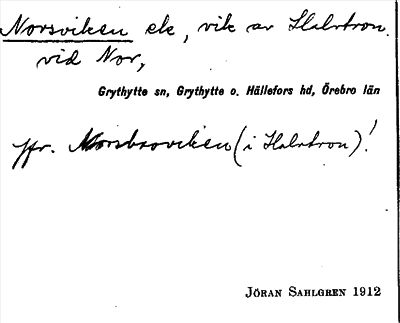 Norsviken ek, vik av Halvtron.
vid Nor,
Grythytte sn, Grythytte o. Hällefors hd, Örebro län
jfr. Norsbroviken (i Halvtron)!
JÖRAN SAHLGREN 1912